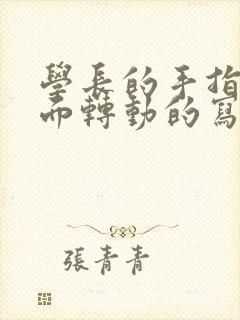 學長的手指
而轉動的寫
張青青